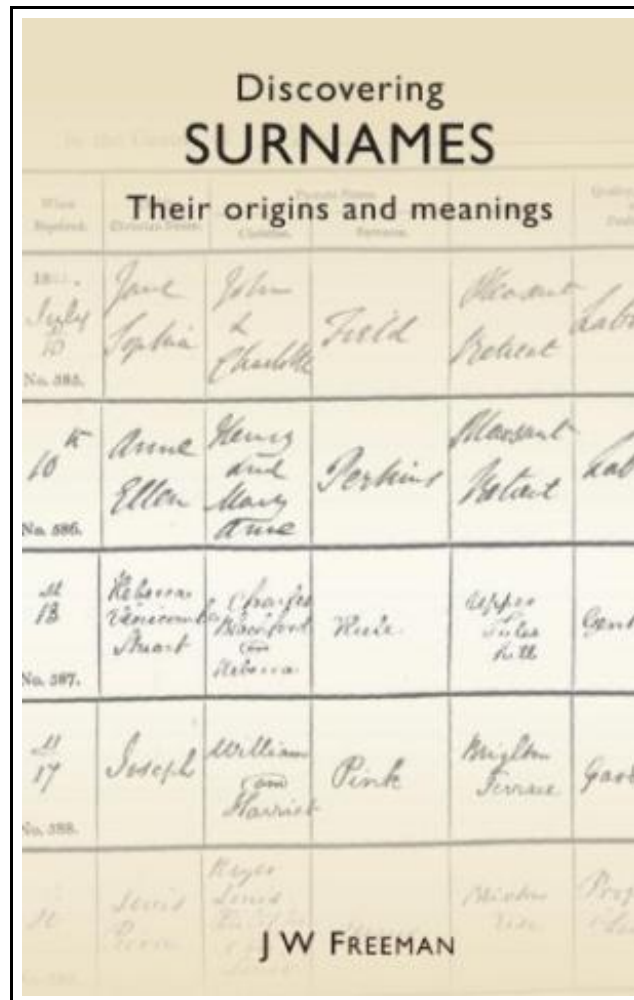 Discovering
SURNAMES
Their origins and meanings
When
Baptized.
Christian
Surname.
18
July
10
No. 385.
Jane
Sophia
John
&
Charlotte
Field
Pleasant
Retreat
10
th
No. 386.
Anne
Ellen
Henry
and
Mary
Anne
Perkins
Pleasant
Retreat
18
No. 387.
Rebecca
Stuart
Charles
Rebecca
Upper
Tulse
Hill
Gent
17
No. 388.
Joseph
William
Harriet
Pink
Brixton
Terrace
Lewis
J W FREEMAN